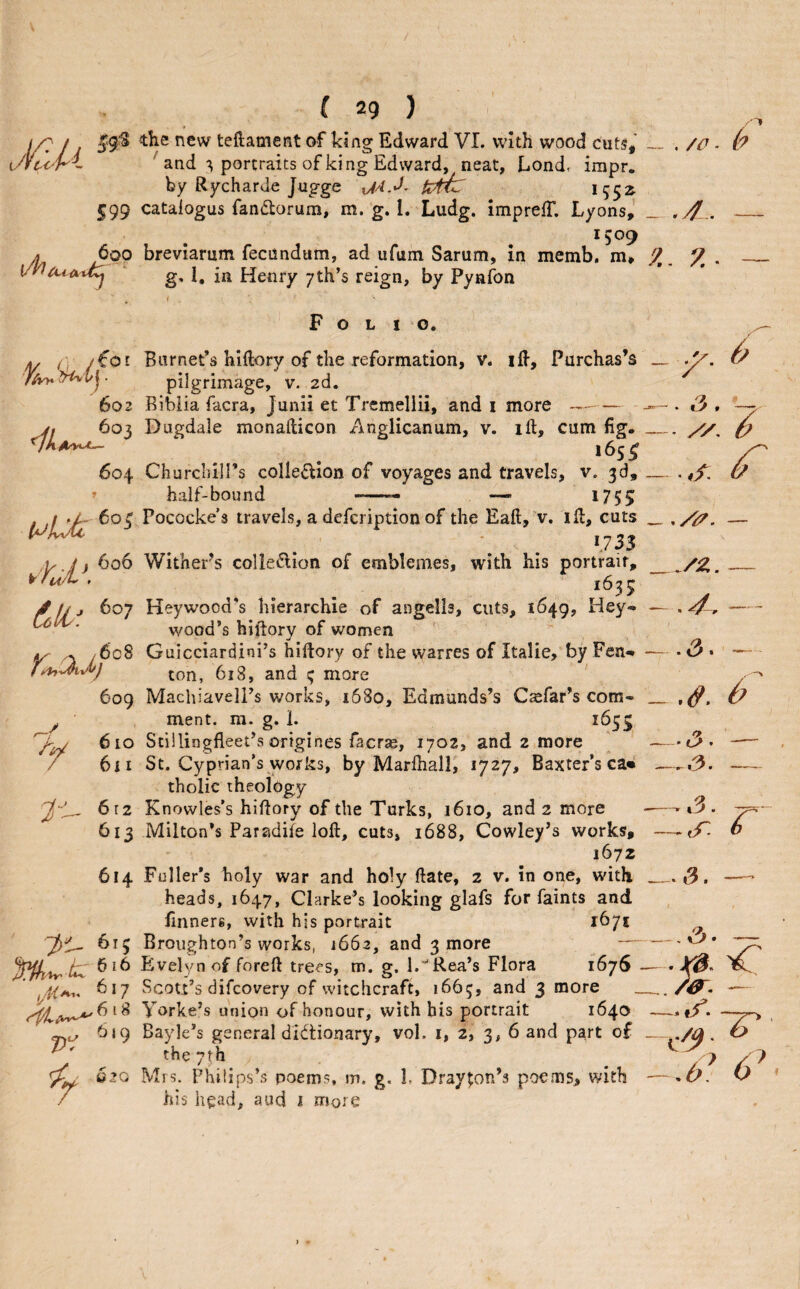 ( 29 )
598 the new teſtament of king Edward VI. with wood cuts, — . 10 . 6
and 3 portraits of king Edward, neat, Lond. impr.
by Rycharde Jugge 1552
599 catalogus ſanctorum, m. g. l. Ludg. impreſſ. Lyons, — . 4 . —
1509
600 breviarum ſecundum, ad uſum Sarum, in memb. m, 2 . 2 . —
g. l. in Henry 7th's reign, by Pynſon
FOLIO.
601 Burnet's hiſtory of the reformation, v. iſt, Purchas's —
pilgrimage, v. 2d.
602 Biblia ſacra, Junii et Tremellii, and 1 more — . 3 . —
603 Dugdale monaſticon Anglicanum, v. iſt, cum fig. — . 11 . 6
1655
604 Churchill's collection of voyages and travels, v. 3d, — . 5 . 6
half-bound —— — 1755
605 Pococke's travels, a deſcription of the Eaſt, v. iſt, cuts — . 10 . —
1733
606 Wither's collection of emblemes, with his portrait, — . 12 . —
1635
607 Heywood's hierarchie of angells, cuts, 1649, Hey- — . 4 . —
wood's hiſtory of women
608 Guicciardini's hiſtory of the warres of Italie, by Fen- — . 3 . —
ton, 618, and 5 more
609 Machiavell's works, 1680, Edmunds's Cæſar's com- — . 8 . 6
ment. m. g. l. 1655
610 Stillingfleet's origines ſacræ, 1702, and 2 more — . 3 . —
611 St. Cyprian's works, by Marſhall, 1727, Baxter's ca- — . 3 . —
tholic theology
612 Knowles's hiſtory of the Turks, 1610, and 2 more — . 3 . —
613 Milton's Paradiſe loſt, cuts, 1688, Cowley's works, — . 5 . 6
1672
614 Fuller's holy war and holy ſtate, 2 v. in one, with — . 3 . —
heads, 1647, Clarke's looking glaſs for ſaints and
ſinners, with his portrait 1671
615 Broughton's works, 1662, and 3 more — . 3 . —
616 Evelyn of foreſt trees, m. g. l. Rea's Flora 1676 —
617 Scott's diſcovery of witchcraft, 1665, and 3 more — . 10 . —
618 Yorke's union of honour, with his portrait 1640 — . 5 . —
619 Bayle's general dictionary, vol. 1, 2, 3, 6 and part of — . 19 . 6
the 7th
620 Mrs. Philips's poems, m. g. l. Drayton's poems, with — . 6 . 6
his head, and 1 more